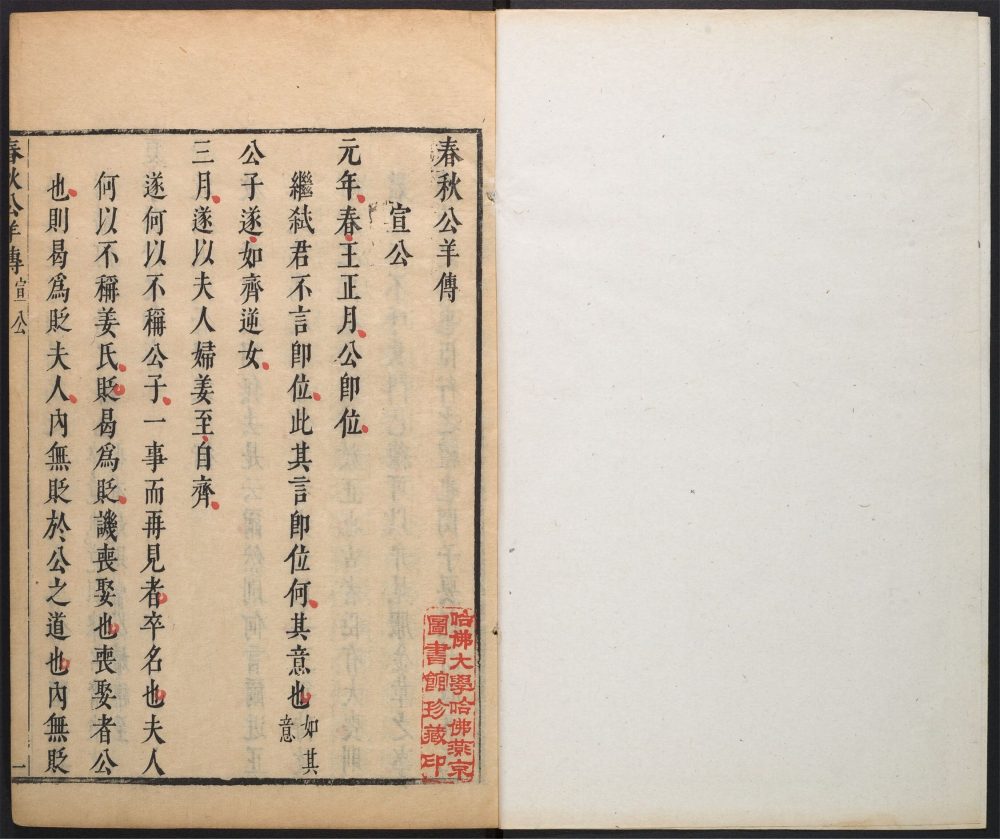 春秋公羊傳
宣公
元年春王正月公卽位
繼弑君不言卽位此其言卽位何其意也如其意
公子遂如齊逆女
三月遂以夫人婦姜至自齊
遂何以不稱公子一事而再見者卒名也夫人
何以不稱姜氏貶曷爲貶譏喪娶也喪娶者公
也則曷爲貶夫人內無貶於公之道也內無貶
春秋公羊傳 宣公 一
哈佛大學哈佛燕京
圖書館珍藏印